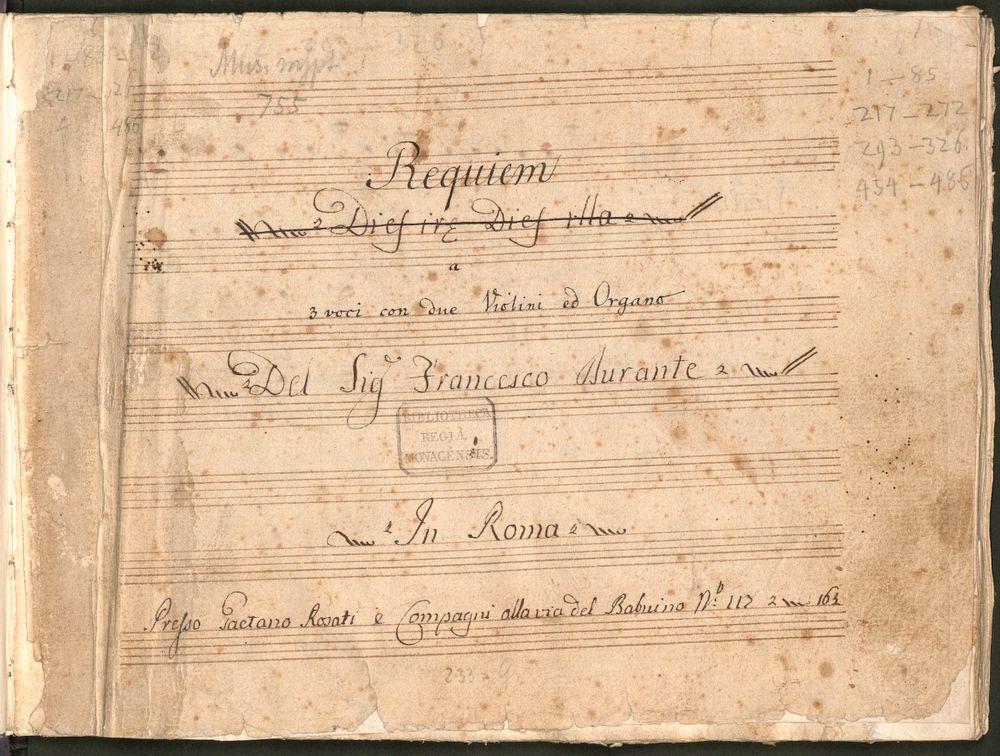 Mus. mspt.
755
1–85
217–272
293–326
454–486
Requiem
Dies irę Dies illa
a
3 voci con due Violini ed Organo
Del Sig.r Francesco Durante
BIBLIOTHECA
REGIA
MONACENSIS.
In Roma
Presso Gaetano Rosati è Compagni alla via del Babuino N.o 117
233